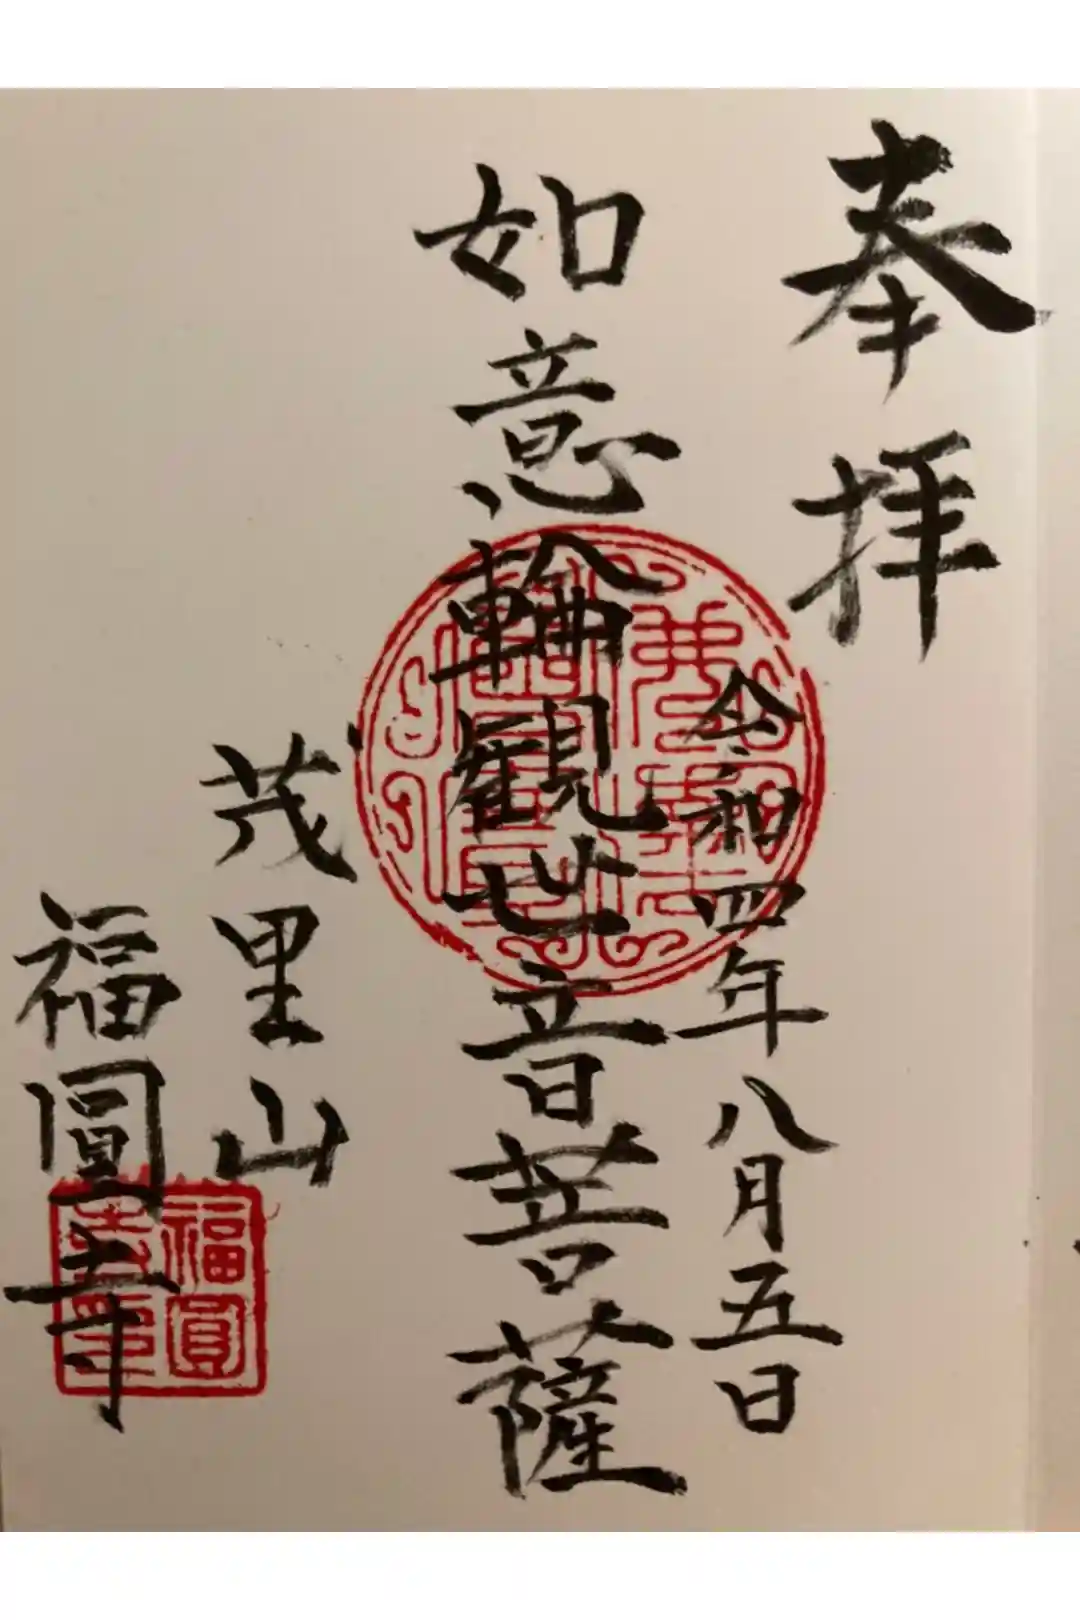 奉拝
令和四年八月五日
如意輪観世音菩薩
茂里山
福圓寺
福圓